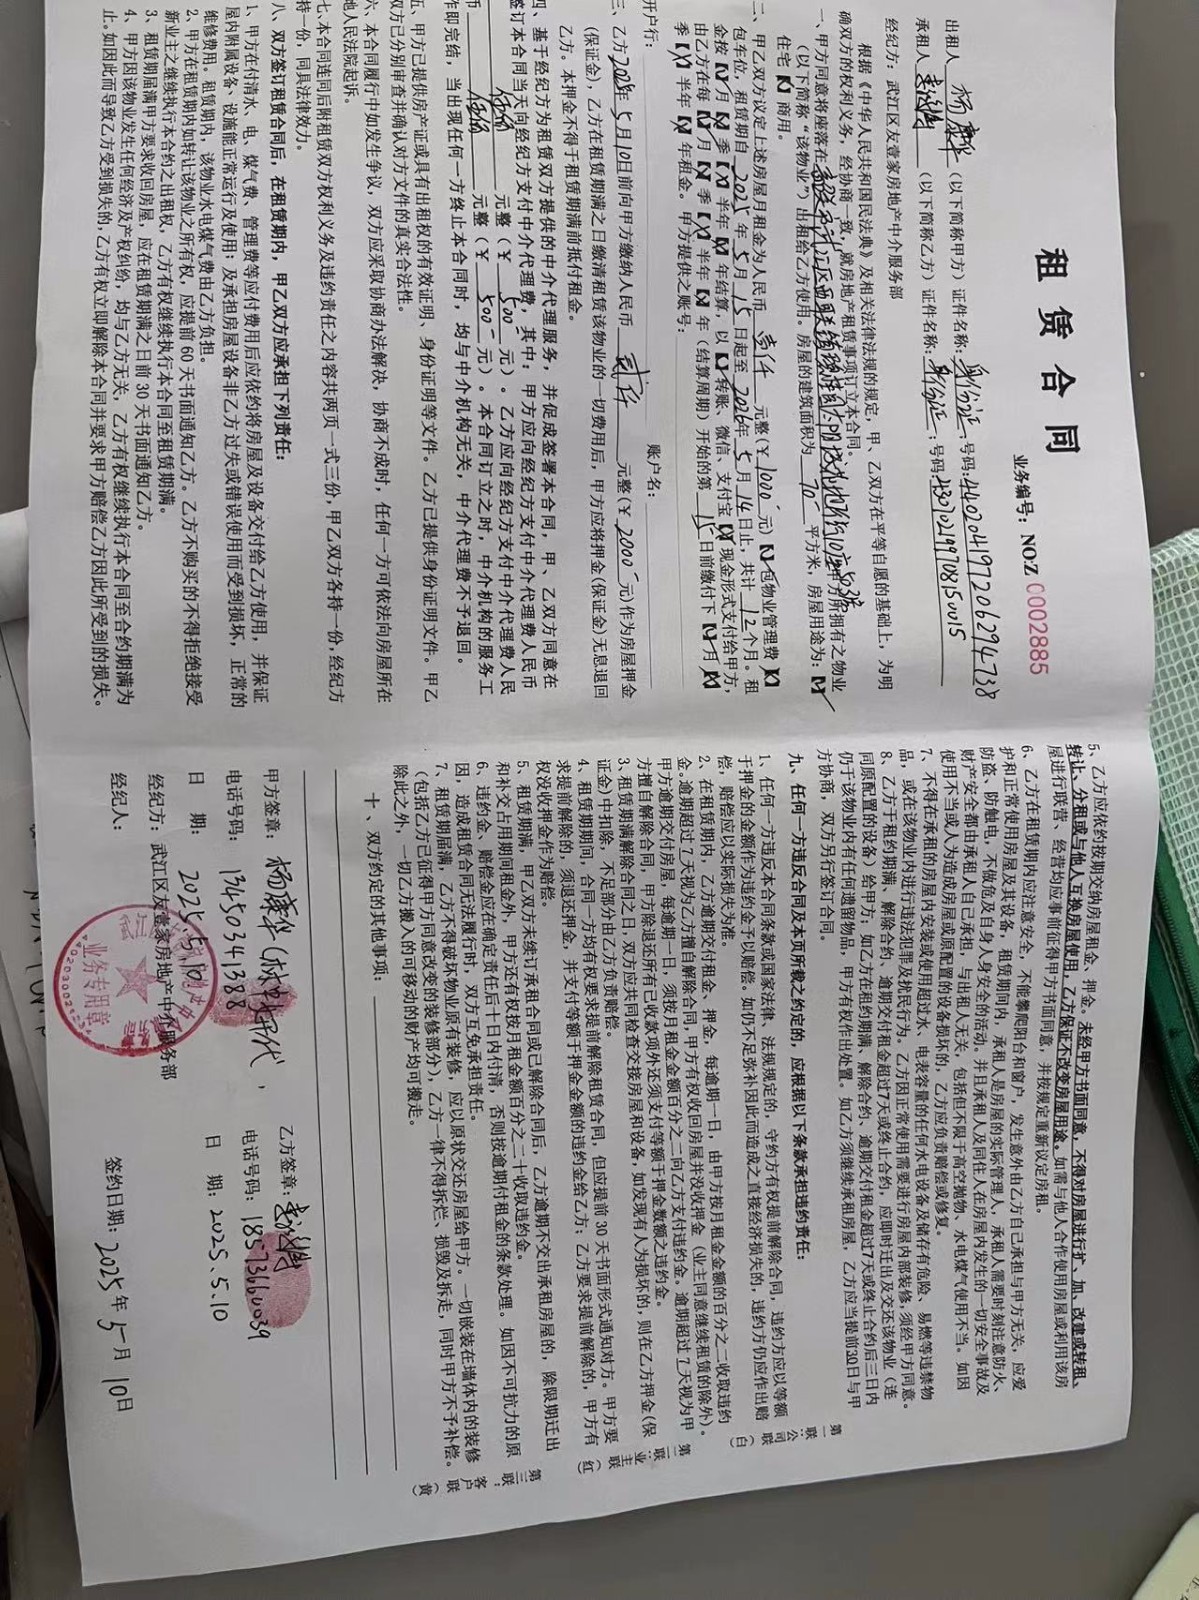 租赁合同
业务编号：NO.Z 0002885
出租人 杨康平 （以下简称甲方）证件名称：身份证；号码：440204197206294738
承租人 （以下简称乙方）证件名称：身份证；号码：
经纪方：武江区友壹家房地产中介服务部
根据《中华人民共和国民法典》及相关法律法规的规定，甲、乙双方在平等自愿的基础上，为明
确双方的权利义务，经协商一致，就房地产租赁事项订立本合同。
一、甲方同意将座落在 甲方所拥有之物业
（以下简称“该物业”）出租给乙方使用。房屋的建筑面积为 70 平方米，房屋用途为：【√】
住宅【 】商用。
二、甲乙双方议定上述房屋月租金为人民币 壹仟 元整（￥1000 元）【 】包物业管理费【 】
包车位，租赁期自 2025 年 5 月 15 日起至 2026 年 5 月 14 日止，共计 12 个月。租
金按【√】月【 】季【 】半年【 】年结算，以【 】转账、微信、支付宝【 】现金形式支付给甲方，
由乙方在每【√】月【 】季【 】半年【 】年（结算周期）开始的第 15 日前缴付下【√】月【 】
季【 】半年【 】年租金。甲方提供之账号：
开户行： 账户名：
三、乙方 2025 年 5 月 10 日前向甲方缴纳人民币 贰仟 元整（￥ 2000 元）作为房屋押金
（保证金），乙方在租赁期满之日缴清租赁该物业的一切费用后，甲方应将押金（保证金）无息退回
乙方。本押金不得于租赁期满前抵付租金。
四、基于经纪方为租赁双方提供的中介代理服务，并促成签署本合同，甲、乙双方同意在
签订本合同当天向经纪方支付中介代理费，其中：甲方应向经纪方支付中介代理费人民币
伍佰 元整（￥ 500 元）。乙方应向经纪方支付中介代理费人民
币 伍佰 元整（￥ 500 元）。本合同订立之时，中介机构的服务工
作即完结，当出现任何一方终止本合同时，均与中介机构无关，中介代理费不予退回。
五、甲方已提供房产证或具有出租权的有效证明、身份证明等文件。乙方已提供身份证明文件。甲乙
双方已分别审查并确认对方文件的真实合法性。
六、本合同履行中如发生争议，双方应采取协商办法解决，协商不成时，任何一方可依法向房屋所在
地人民法院起诉。
七、本合同连同后附租赁双方权利义务及违约责任之内容共两页一式三份，甲乙双方各持一份，经纪方
持一份，同具法律效力。
八、双方签订租赁合同后，在租赁期内，甲乙双方应承担下列责任：
1、甲方在付清水、电、煤气费、管理费等应付费用后应依约将房屋及设备交付给乙方使用，并保证
屋内附属设备、设施能正常运行及使用；及承担房屋设备非乙方过失或错误使用而受到损坏，正常的
维修费用。租赁期内，该物业水电煤气费由乙方负担。
2、甲方在租赁期内如转让该物业之所有权，应提前60天书面通知乙方。乙方不购买的不得拒绝接受
新业主之继续执行本合约之出租权，乙方有权继续执行本合同至租赁期满。
3、租赁期届满甲方要求收回房屋，应在租赁期满之日前30天书面通知乙方。
4、甲方因该物业发生任何经济及产权纠纷，均与乙方无关，乙方有权继续执行本合同至合约期满为
止。如因此而导致乙方受到损失的，乙方有权立即解除本合同并要求甲方赔偿乙方因此所受到的损失。
5、乙方应依约按期交纳房屋租金、押金。未经甲方书面同意，不得对房屋进行扩、加、改建或转租、
转让、分租或与他人互换房屋使用，乙方保证不改变房屋用途。如需与他人合作使用房屋或利用该房
屋进行联营、经营均应事前征得甲方书面同意，并按规定重新议定房租。
6、乙方在租赁期内应注意安全，不能攀爬阳台和窗户，发生意外由乙方自己承担与甲方无关，应爱
护和正常使用房屋及其设备，租赁期间内，承租人是房屋的实际管理人，承租人需要时刻注意防火、
防盗、防触电，不做危及自身人身安全的活动。并且承租人及同住人在房屋内发生的一切安全事故及
财产安全都由承租人自己承担，与出租人无关，包括但不限于高空抛物、水电煤气使用不当。如因
使用不当或人为造成房屋或原配置的设备损坏的，乙方应负责赔偿或修复。
7、不得在承租的房屋内安装或使用超过水、电表容量的任何水电设备及储存有危险、易燃等违禁物
品，或在该物业内进行违法犯罪及扰民行为。乙方因正常使用需要进行房屋内部装修，须经甲方同意。
8、乙方于租约期满、解除合约，逾期交付租金超过7天或终止合约，应即时迁出及交还该物业（连
同原配置的设备）给甲方，如乙方在租约期满、解除合约、逾期交付租金超过7天或终止合约后三日内
仍于该物业内有任何遗留物品，甲方有权作出处置。如乙方须继续承租房屋，乙方应当提前30日与甲
方协商，双方另行签订合同。
九、任何一方违反合同及本页所载之约定的，应根据以下条款承担违约责任：
1、任何一方违反本合同条款或国家法律、法规规定的，守约方有权提前解除合同，违约方应以等额
于押金的金额作为违约金予以赔偿。如仍不足弥补因此而造成之直接经济损失的，违约方仍应作出赔
偿，赔偿应以实际损失为准。
2、在租赁期内，乙方逾期交付租金、押金，每逾期一日，由甲方按月租金金额的百分之二收取违约
金。逾期超过7天视为乙方擅自解除合同，甲方有权收回房屋并没收押金（业主同意继续租赁的除外）。
甲方逾期交付房屋，每逾期一日，须按月租金金额百分之二向乙方支付违约金。逾期超过7天视为甲
方擅自解除合同，甲方除退还所有已收款项外还须支付等额于押金数额之违约金。
3、租赁期满解除合同之日，双方应共同检查交接房屋和设备，如发现有人为损坏的，则在乙方押金（保
证金）中扣除，不足部分由乙方负责赔偿。
4、租赁期期间，合同一方均有权要求提前解除租赁合同，但应提前30天书面形式通知对方。甲方要
求提前解除的，须退还押金，并支付等额于押金金额的违约金给乙方；乙方要求提前解除的，甲方有
权没收押金作为赔偿。
5、租赁期满，甲乙双方未续订承租合同或已解除合同后，乙方逾期不交出承租房屋的，除限期迁出
和补交占用期间租金外，甲方还有权按月租金额百分之二十收取违约金。
6、违约金、赔偿金应在确定责任后十日内付清，否则按逾期付租金的条款处理。如因不可抗力的原
因，造成租赁合同无法履行时，双方互免承担责任。
7、租赁期届满，乙方不得破坏物业原有装修，应以原状交还房屋给甲方。一切嵌装在墙体内的装修
（包括乙方已征得甲方同意改变的装修部分），乙方一律不得拆烂、损毁及拆走，同时甲方不予补偿。
除此之外，一切乙方搬入的可移动的财产均可搬走。
十、双方约定的其他事项：
甲方签章：杨康平 乙方签章：
电话号码：13450341388 电话号码：18573660039
日 期：2025.5.10 日 期：2025.5.10
经纪方：武江区友壹家房地产中介服务部
经纪人： 签约日期：2025年5月10日
业务专用章
第一联：公司联（白） 第二联：业主联（红） 第三联：客户联（黄）